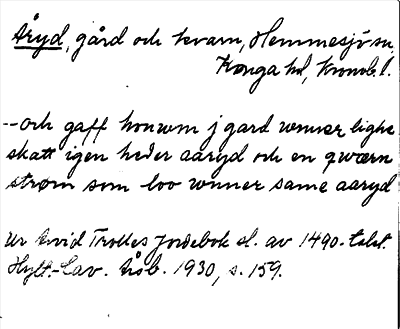 Åryd, gård och kvarn, Hemmesjö sn,
Konga hd, Kronob. l.
--och gaff honwm j gard wenner lighe
skatt igen heder aaryd och en qwærn
strøm som loo wnner same aaryd
Ur Arvid Trolles jordebok sl. av 1490-talet.
Hylt.-Cav. Årsb. 1930, s. 159.